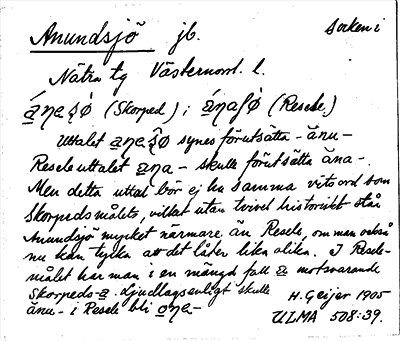 Anundsjö jb. Socken i
Nätra tg Västernorrl. l.
(Skorped) ; (Resele.)
Uttalet synes förutsätta - ănu -
Reseleuttalet - skulle förutsätta ăna -.
Men detta uttal bör ej ha samma vitsord som
Skorpedsmålets, vilket utan tvivel historiskt står
Anundsjö mycket närmare än Resele, om man också
nu kan tycka att det låter lika olika. I Resele-
målet har man i en mängd fall motsvarande
Skorpeds-a. Ljudlagsenligt skulle
ănu - i Resele bli
H. Geijer 1905
ULMA 508:39.